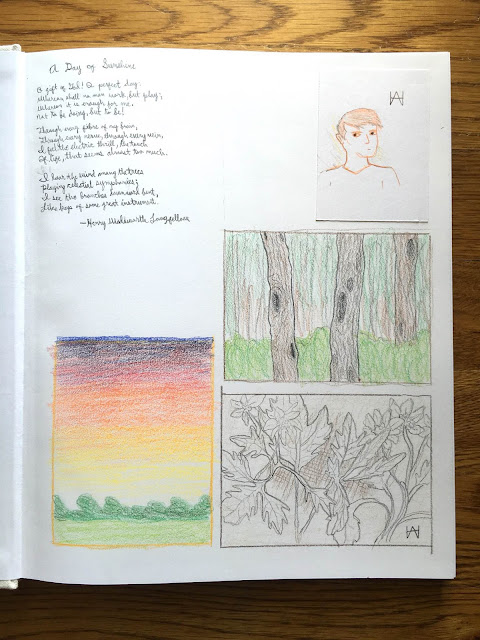 A Day of Sunshine
O gift of God! O perfect day:
Whereon shall no man work, but play;
Whereon it is enough for me,
Not to be doing, but to be!
Through every fibre of my brain,
Through every nerve, through every vein,
I feel the electric thrill, the touch
Of life, that seems almost too much.
I hear the wind among the trees
Playing celestial symphonies;
I see the branches downward bent,
Like keys of some great instrument.
—Henry Wadsworth Longfellow